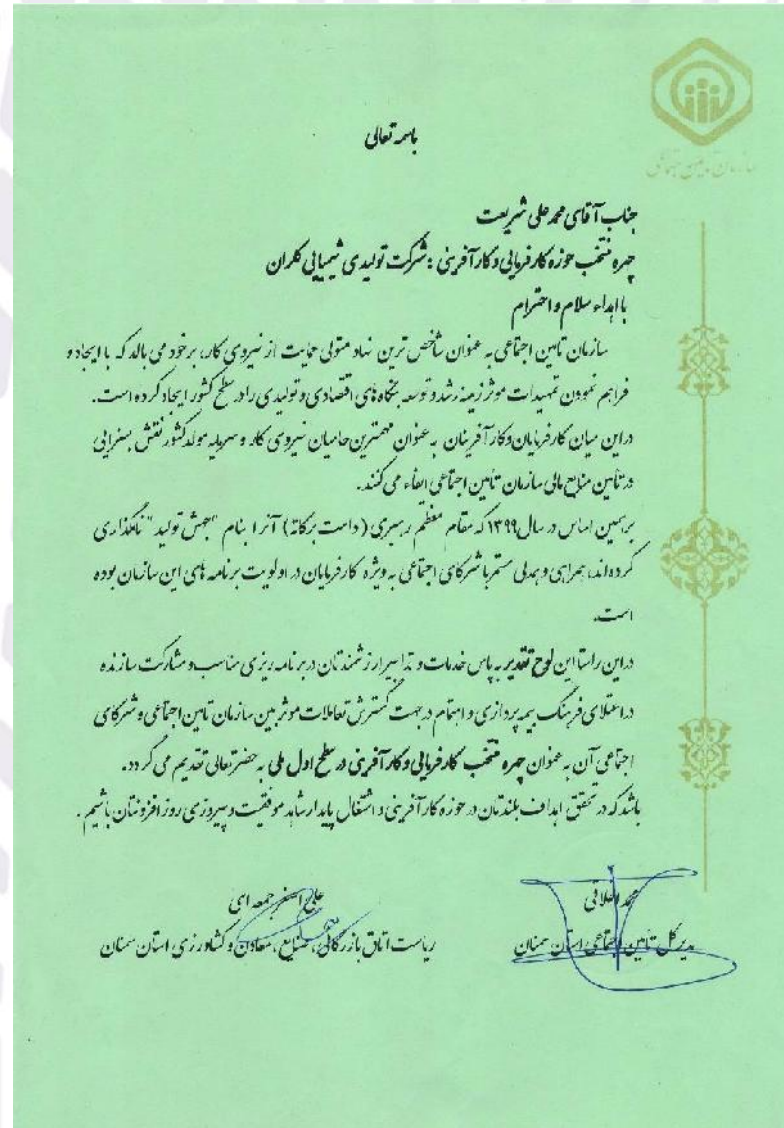 باسمه تعالی
سازمان تامین اجتماعی
جناب آقای محمد علی شریعت
چهره منتخب حوزه کارفرمایی و کارآفرینی : شرکت تولیدی شیمیایی کلران
با اهداء سلام و احترام
سازمان تامین اجتماعی به عنوان شاخص ترین نهاد متولی حمایت از نیروی کار، بر خود می بالد که با ایجاد و
فراهم نمودن تمهیدات موثر زمینه رشد و توسعه بنگاه های اقتصادی و تولیدی را در سطح کشور ایجاد کرده است.
در این میان کارفرمایان و کارآفرینان به عنوان مهمترین حامیان نیروی کار و سرمایه مولد کشور نقش بسزایی
در تأمین منابع مالی سازمان تأمین اجتماعی ایفاء می کنند.
بر همین اساس در سال ۱۳۹۹ که مقام معظم رهبری (دامت برکاته) آنرا بنام "جهش تولید" نامگذاری
کرده اند، همراهی و همدلی مستمر با شرکای اجتماعی به ویژه کارفرمایان در اولویت برنامه های این سازمان بوده
است.
در این راستا این لوح تقدیر به پاس خدمات و تدابیر ارزشمندتان در برنامه ریزی مناسب و مشارکت سازنده
در اعتلای فرهنگ بیمه پردازی و اهتمام در جهت گسترش تعاملات موثر بین سازمان تامین اجتماعی و شرکای
اجتماعی آن به عنوان چهره منتخب کارفرمایی و کارآفرینی در سطح اول ملی به حضرتعالی تقدیم می گردد.
باشد که در تحقق اهداف بلندتان در حوزه کارآفرینی و اشتغال پایدار شاهد موفقیت و پیروزی روز افزونتان باشیم.
محمد اخلاقی
مدیر کل تأمین اجتماعی استان سمنان
علی اصغر جمعه ای
ریاست اتاق بازرگانی، صنایع، معادن و کشاورزی استان سمنان